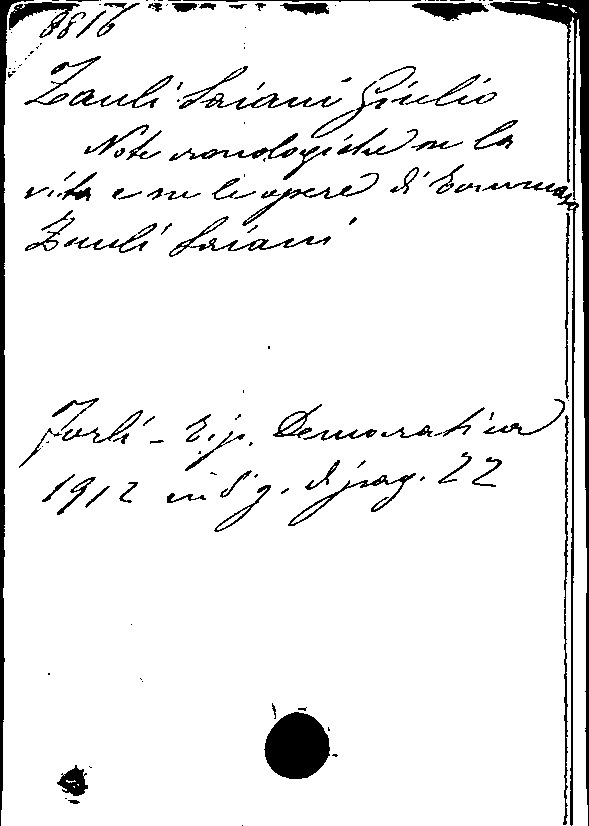 8816
Zauli Saiani Giulio
Note cronologiche su la
vita e su le opere di Tommaso
Zauli Saiani
Forlì - Tip. Democratica
1912 in 8° g. di pag. 22